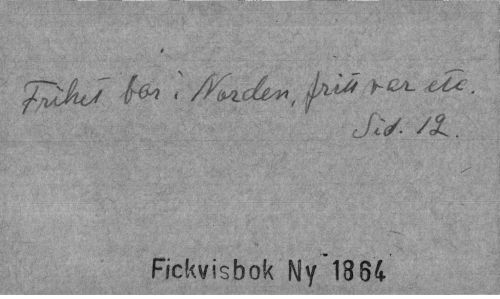 Frihet bor i Norden, fritt var etc.
Sid. 12.
Fickvisbok Ny 1864